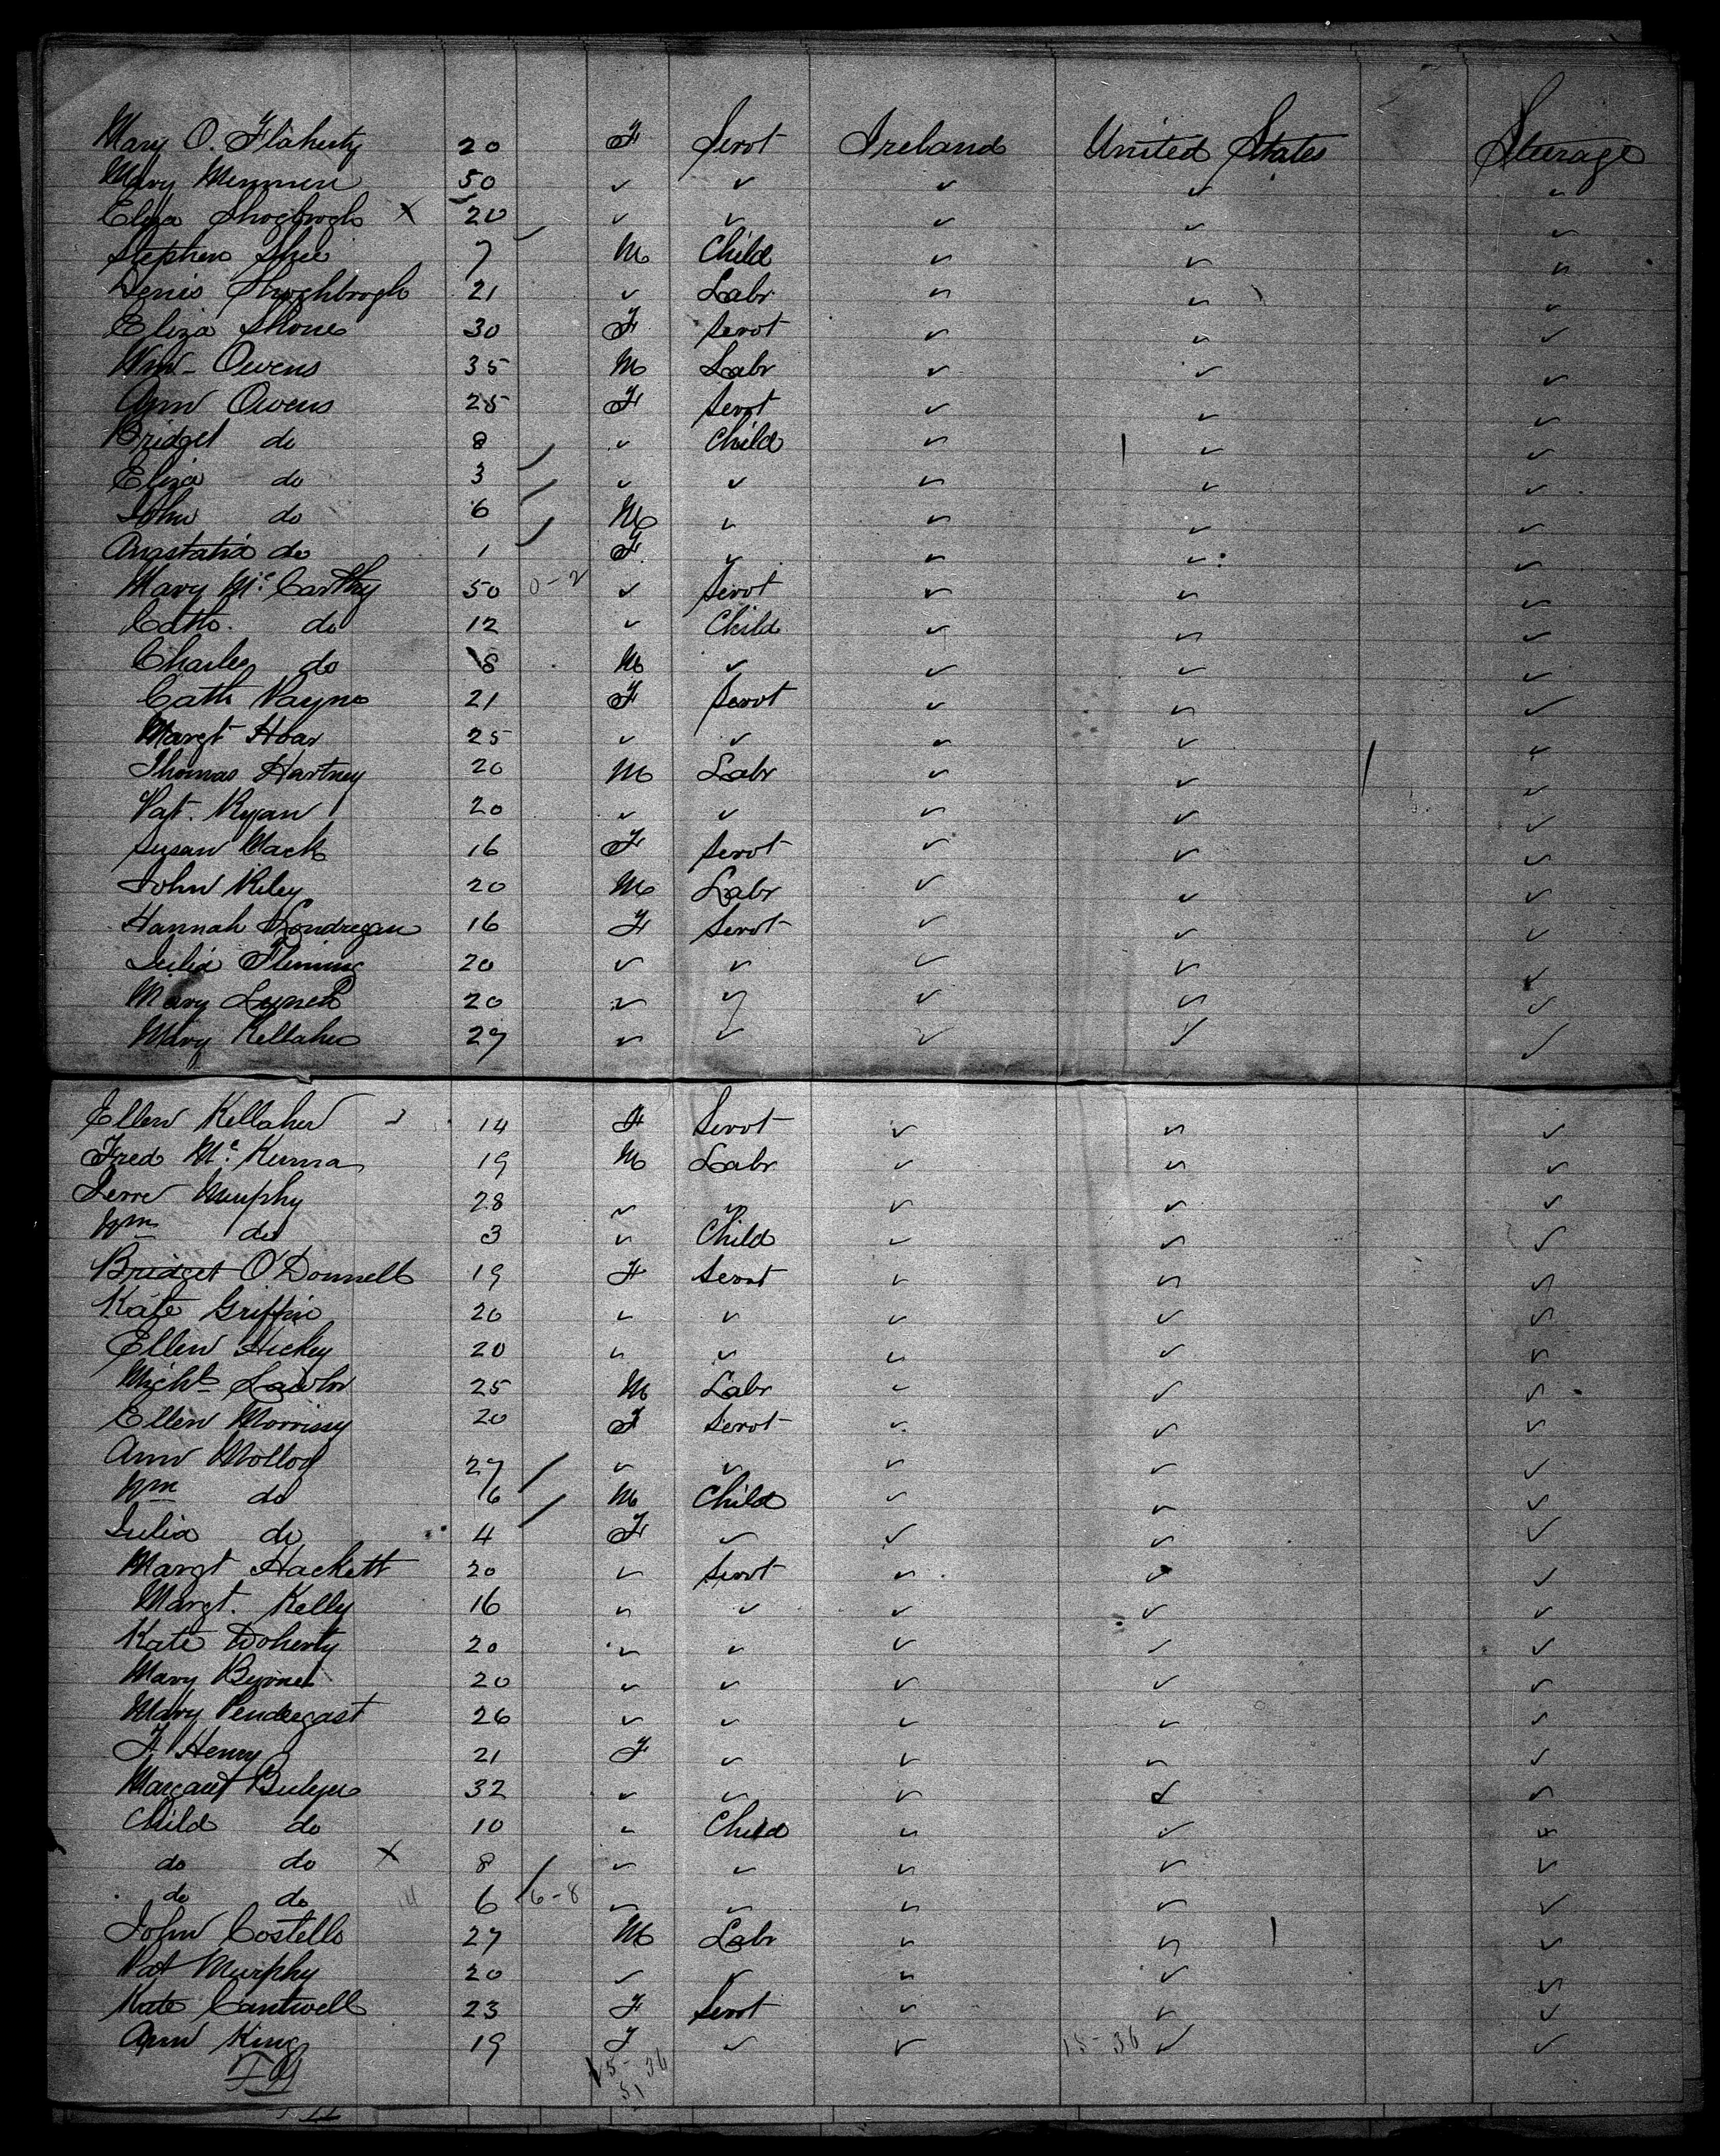 Mary O. Flaherty 20 F Servt Ireland United States Steerage
Mary 50 ✓ ✓ ✓ ✓ ✓
Eliza X 20 ✓ ✓ ✓ ✓ ✓
Stephen Shee 7 M Child ✓ ✓ ✓
Denis 21 ✓ Labr ✓ ✓ ✓
Eliza Shone 30 F Servt ✓ ✓ ✓
Wm Owens 35 M Labr ✓ ✓ ✓
Ann Owens 25 F Servt ✓ ✓ ✓
Bridget do 8 ✓ Child ✓ ✓ ✓
Eliza do 3 ✓ ✓ ✓ ✓ ✓
John do 6 M ✓ ✓ ✓ ✓
Anastatia do 1 F ✓ ✓ ✓ ✓
Mary Mc Carthy 50 0-2 ✓ Servt ✓ ✓ ✓
Cath. do 12 ✓ Child ✓ ✓ ✓
Charles do 8 M ✓ ✓ ✓ ✓
Cath Payne 21 F Servt ✓ ✓ ✓
Margt Hoar 25 ✓ ✓ ✓ ✓ ✓
Thomas Hartney 20 M Labr ✓ ✓ ✓
Pat. Ryan 20 ✓ ✓ ✓ ✓ ✓
Susan Mack 16 F Servt ✓ ✓ ✓
John Riley 20 M Labr ✓ ✓ ✓
Hannah Londregan 16 F Servt ✓ ✓ ✓
Julia Fleming 20 ✓ ✓ ✓ ✓ ✓
Mary Lynch 20 ✓ ✓ ✓ ✓ ✓
Mary Kellaher 27 ✓ ✓ ✓ ✓ ✓
Ellen Kellaher 14 F Servt ✓ ✓ ✓
Fred Mc Kenna 19 M Labr ✓ ✓ ✓
Jerre Murphy 28 ✓ ✓ ✓ ✓ ✓
Wm do 3 ✓ Child ✓ ✓ ✓
Bridget O'Donnell 19 F Servt ✓ ✓ ✓
Kate Griffin 20 ✓ ✓ ✓ ✓ ✓
Ellen Hickey 20 ✓ ✓ ✓ ✓ ✓
Michl Lawlor 25 M Labr ✓ ✓ ✓
Ellen Morrissy 20 F Servt ✓ ✓ ✓
Ann Molloy 27 ✓ ✓ ✓ ✓ ✓
Wm do 6 M Child ✓ ✓ ✓
Julia do 4 F ✓ ✓ ✓ ✓
Margt Hackett 20 ✓ Servt ✓ ✓ ✓
Margt. Kelly 16 ✓ ✓ ✓ ✓ ✓
Kate Doherty 20 ✓ ✓ ✓ ✓ ✓
Mary Byrne 20 ✓ ✓ ✓ ✓ ✓
Mary Pendergast 26 ✓ ✓ ✓ ✓ ✓
F Henry 21 F ✓ ✓ ✓ ✓
Margaret 32 ✓ ✓ ✓ ✓ ✓
Child do 10 ✓ Child ✓ ✓ ✓
do do X 8 ✓ ✓ ✓ ✓ ✓
do do 6 6-8 ✓ ✓ ✓ ✓ ✓
John Costello 27 M Labr ✓ ✓ ✓
Pat Murphy 20 ✓ ✓ ✓ ✓ ✓
Kate Cantwell 23 F Servt ✓ ✓ ✓
Ann King 19 F ✓ ✓ 18-36 ✓ ✓
15-36
51